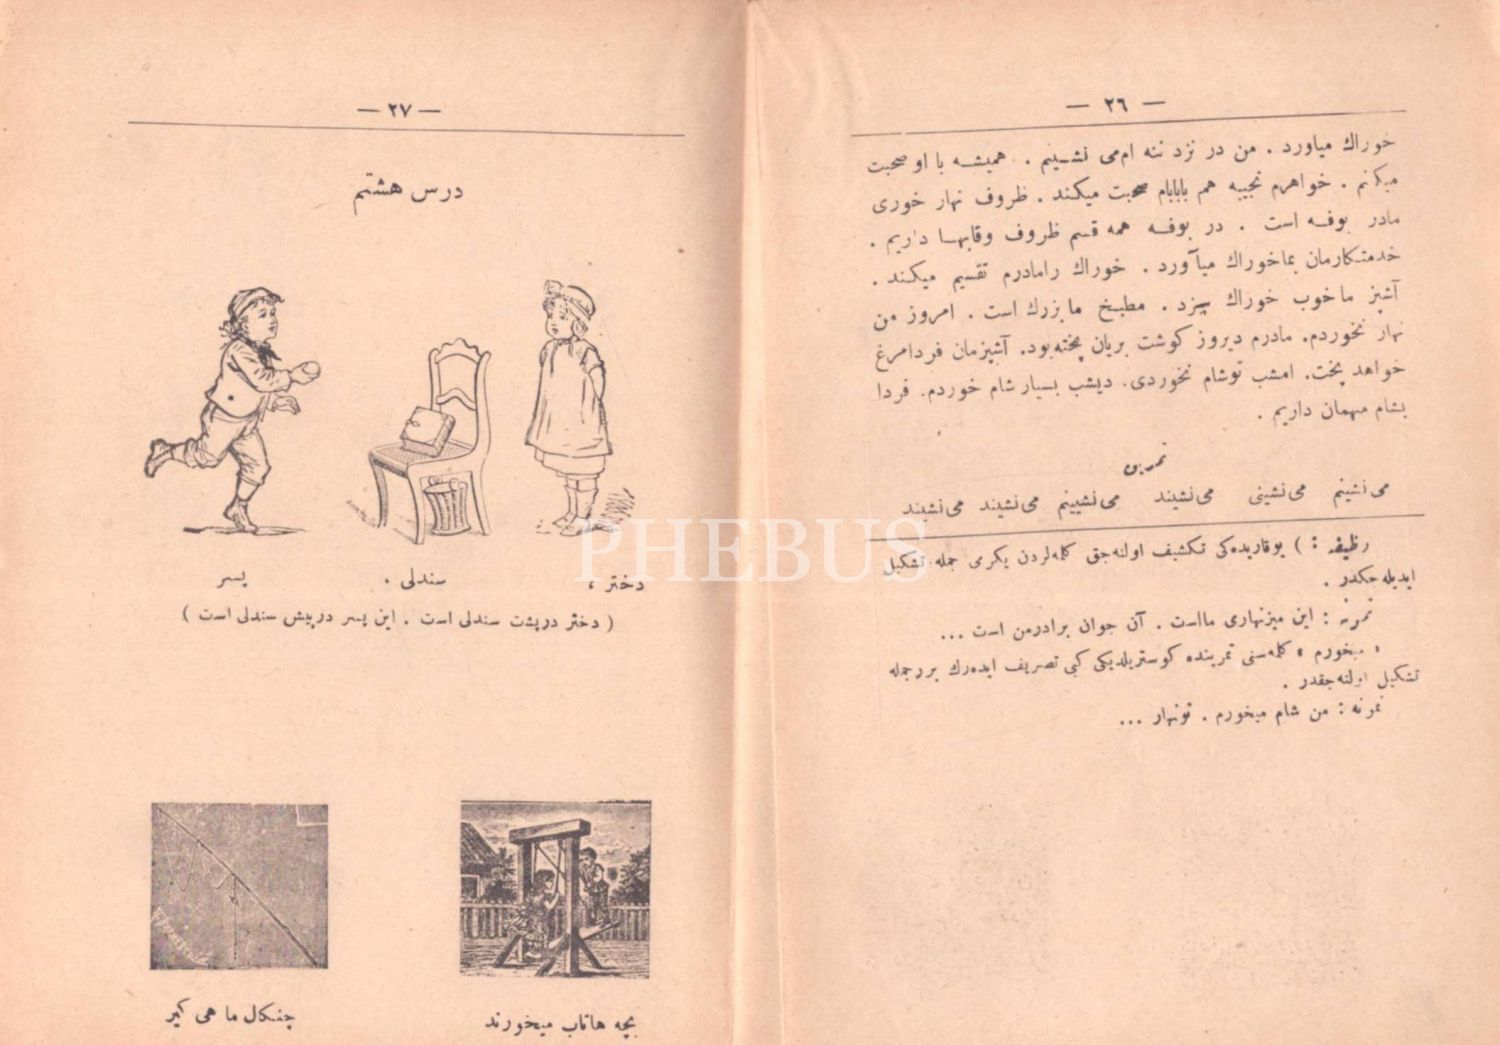 — ٢٦ —
خوراك میاورد . من در نزد ننه ام‌می نشینم . همیشه با او صحبت
میکنم . خواهرم نجیبه هم بابابام صحبت میکند . ظروف نهار خوری
مادر بوفه است . در بوفه همه قسم ظروف وقابها داریم .
خدمتکارمان بماخوراك میآورد . خوراك رامادرم تقسیم میکند .
آشپز ماخوب خوراك میپزد . مطبخ مابزرك است . امروز من
نهار نخوردم. مادرم دیروز كوشت بریان پخته‌بود. آشپزمان فردامرغ
خواهد پخت. امشب توشام نخوردی. دیشب بسیار شام خوردم. فردا
بشام مهمان داریم .
تمرین
می‌نشینم می‌نشینی می‌نشیند می‌نشینیم می‌نشیند می‌نشیند
وظیفه : ) یوقاریده‌كی تكشیف اولنه‌جق كلمه‌لردن یكرمی جمله تشكیل
ایدیله‌جكدر .
نمونه : این میزنهاری مااست . آن جوان برادرمن است ...
« میخورم » كلمه‌سنی تمرینده كوستریلدیكی كبی تصریف ایده‌رك برر جمله
تشكیل اولنه‌جقدر .
نمونه : من شام میخورم . تونهار ...
— ٢٧ —
درس هشتم
دختر ، سندلی . پسر
( دختر درپشت سندلی است . این پسر درپیش سندلی است )
بچه هاتاب میخورند چنكال ما هی كیر
PHEBUS